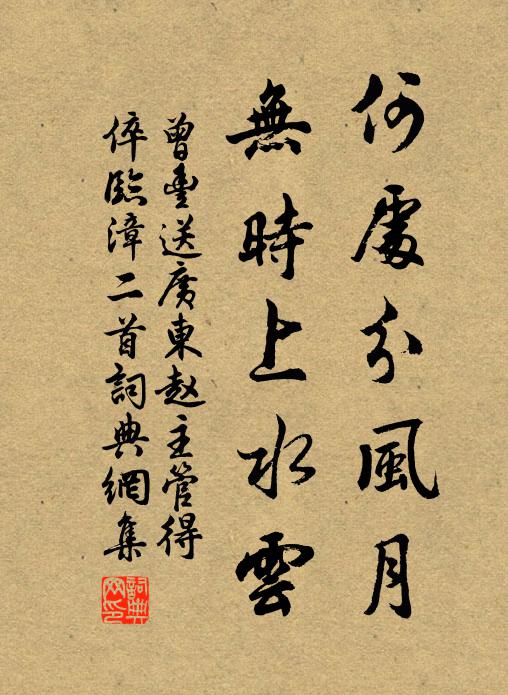 何處分風月
無時上水雲
曾豊送廣東趙主管得
倅臨漳二首詞典網集
詞典网印